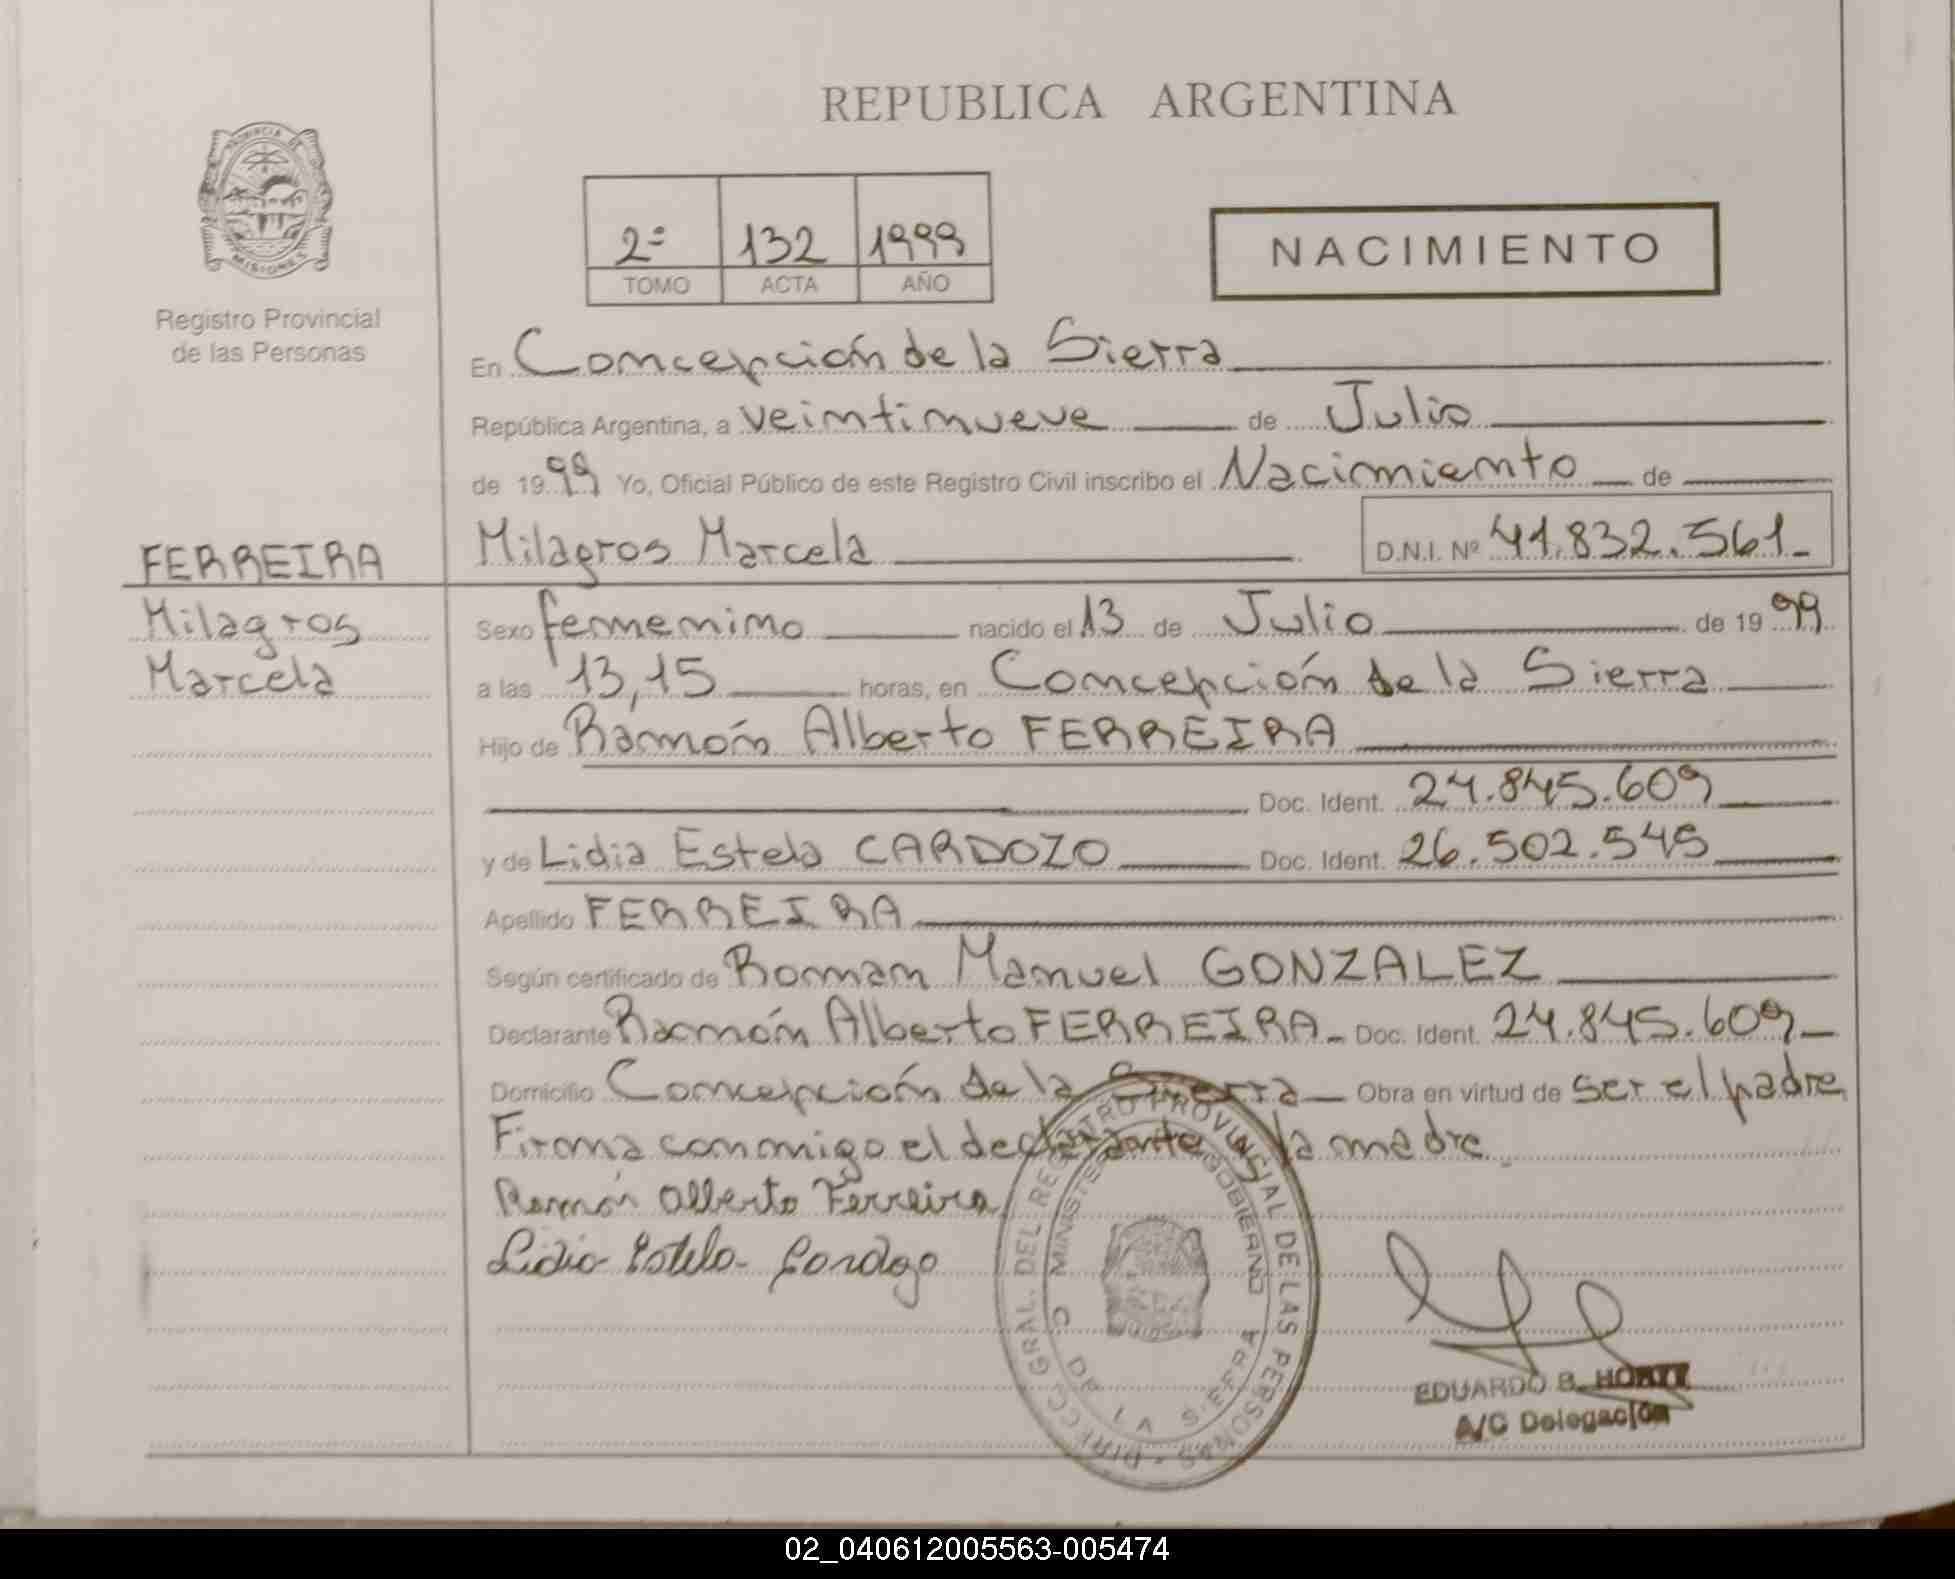 REPUBLICA ARGENTINA
PROVINCIA DE MISIONES
Registro Provincial
de las Personas
2º 132 1999
TOMO ACTA AÑO
NACIMIENTO
En Concepción de la Sierra
República Argentina, a veintinueve de Julio
de 1999 Yo, Oficial Público de este Registro Civil inscribo el Nacimiento de
FERREIRA
Milagros Marcela D.N.I. Nº 41.832.561
Milagros
Marcela
Sexo femenino nacido el 13 de Julio de 1999
a las 13,15 horas, en Concepción de la Sierra
Hijo de Ramón Alberto FERREIRA
Doc. Ident. 24.845.609
y de Lidia Estela CARDOZO Doc. Ident. 26.502.545
Apellido FERREIRA
Según certificado de Roman Manuel GONZALEZ
Declarante Ramón Alberto FERREIRA Doc. Ident. 24.845.609
Domicilio Concepción de la Sierra Obra en virtud de ser el padre
Firma conmigo el declarante y la madre
Ramón Alberto Ferreira
Lidia Estela Cardozo
DIRECC. GRAL. DEL REGISTRO PROVINCIAL DE LAS PERSONAS
MINISTERIO GOBIERNO
C DE LA SIERRA
EDUARDO B.
A/C Delegación
02_040612005563-005474